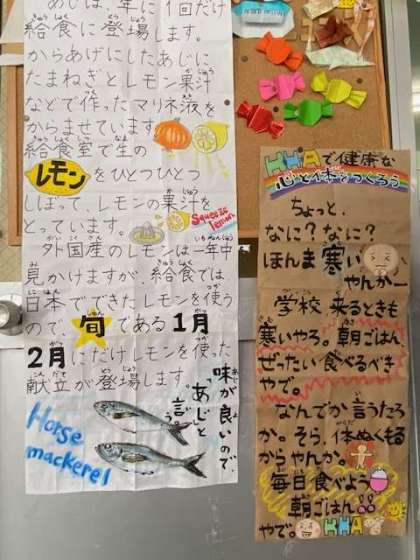 あじは、年に1回だけ
給食に登場します。
からあげにしたあじに
たまねぎとレモン果汁
などで作ったマリネ液を
からませています。
給食室で生の
レモンをひとつひとつ
しぼって、レモンの果汁を
とっています。
Squeeze lemon
外国産のレモンは一年中
見かけますが、給食では、
日本でできたレモンを使う
ので、旬である1月
2月にだけレモンを使った
献立が登場します。
味が良いので、
あじと
言う。
Horse
mackerel
HHAで健康な
心と体をつくろう
ちょっと、
なに?なに?
ほんま寒い
やんかー
学校来るときも
寒いやろ。朝ごはん、
ぜったい食べるべき
やで。
なんでか言うたろ
か。そら、体ぬくもる
からやんか。
毎日食べよう
朝ごはん!!
やで。
HHA